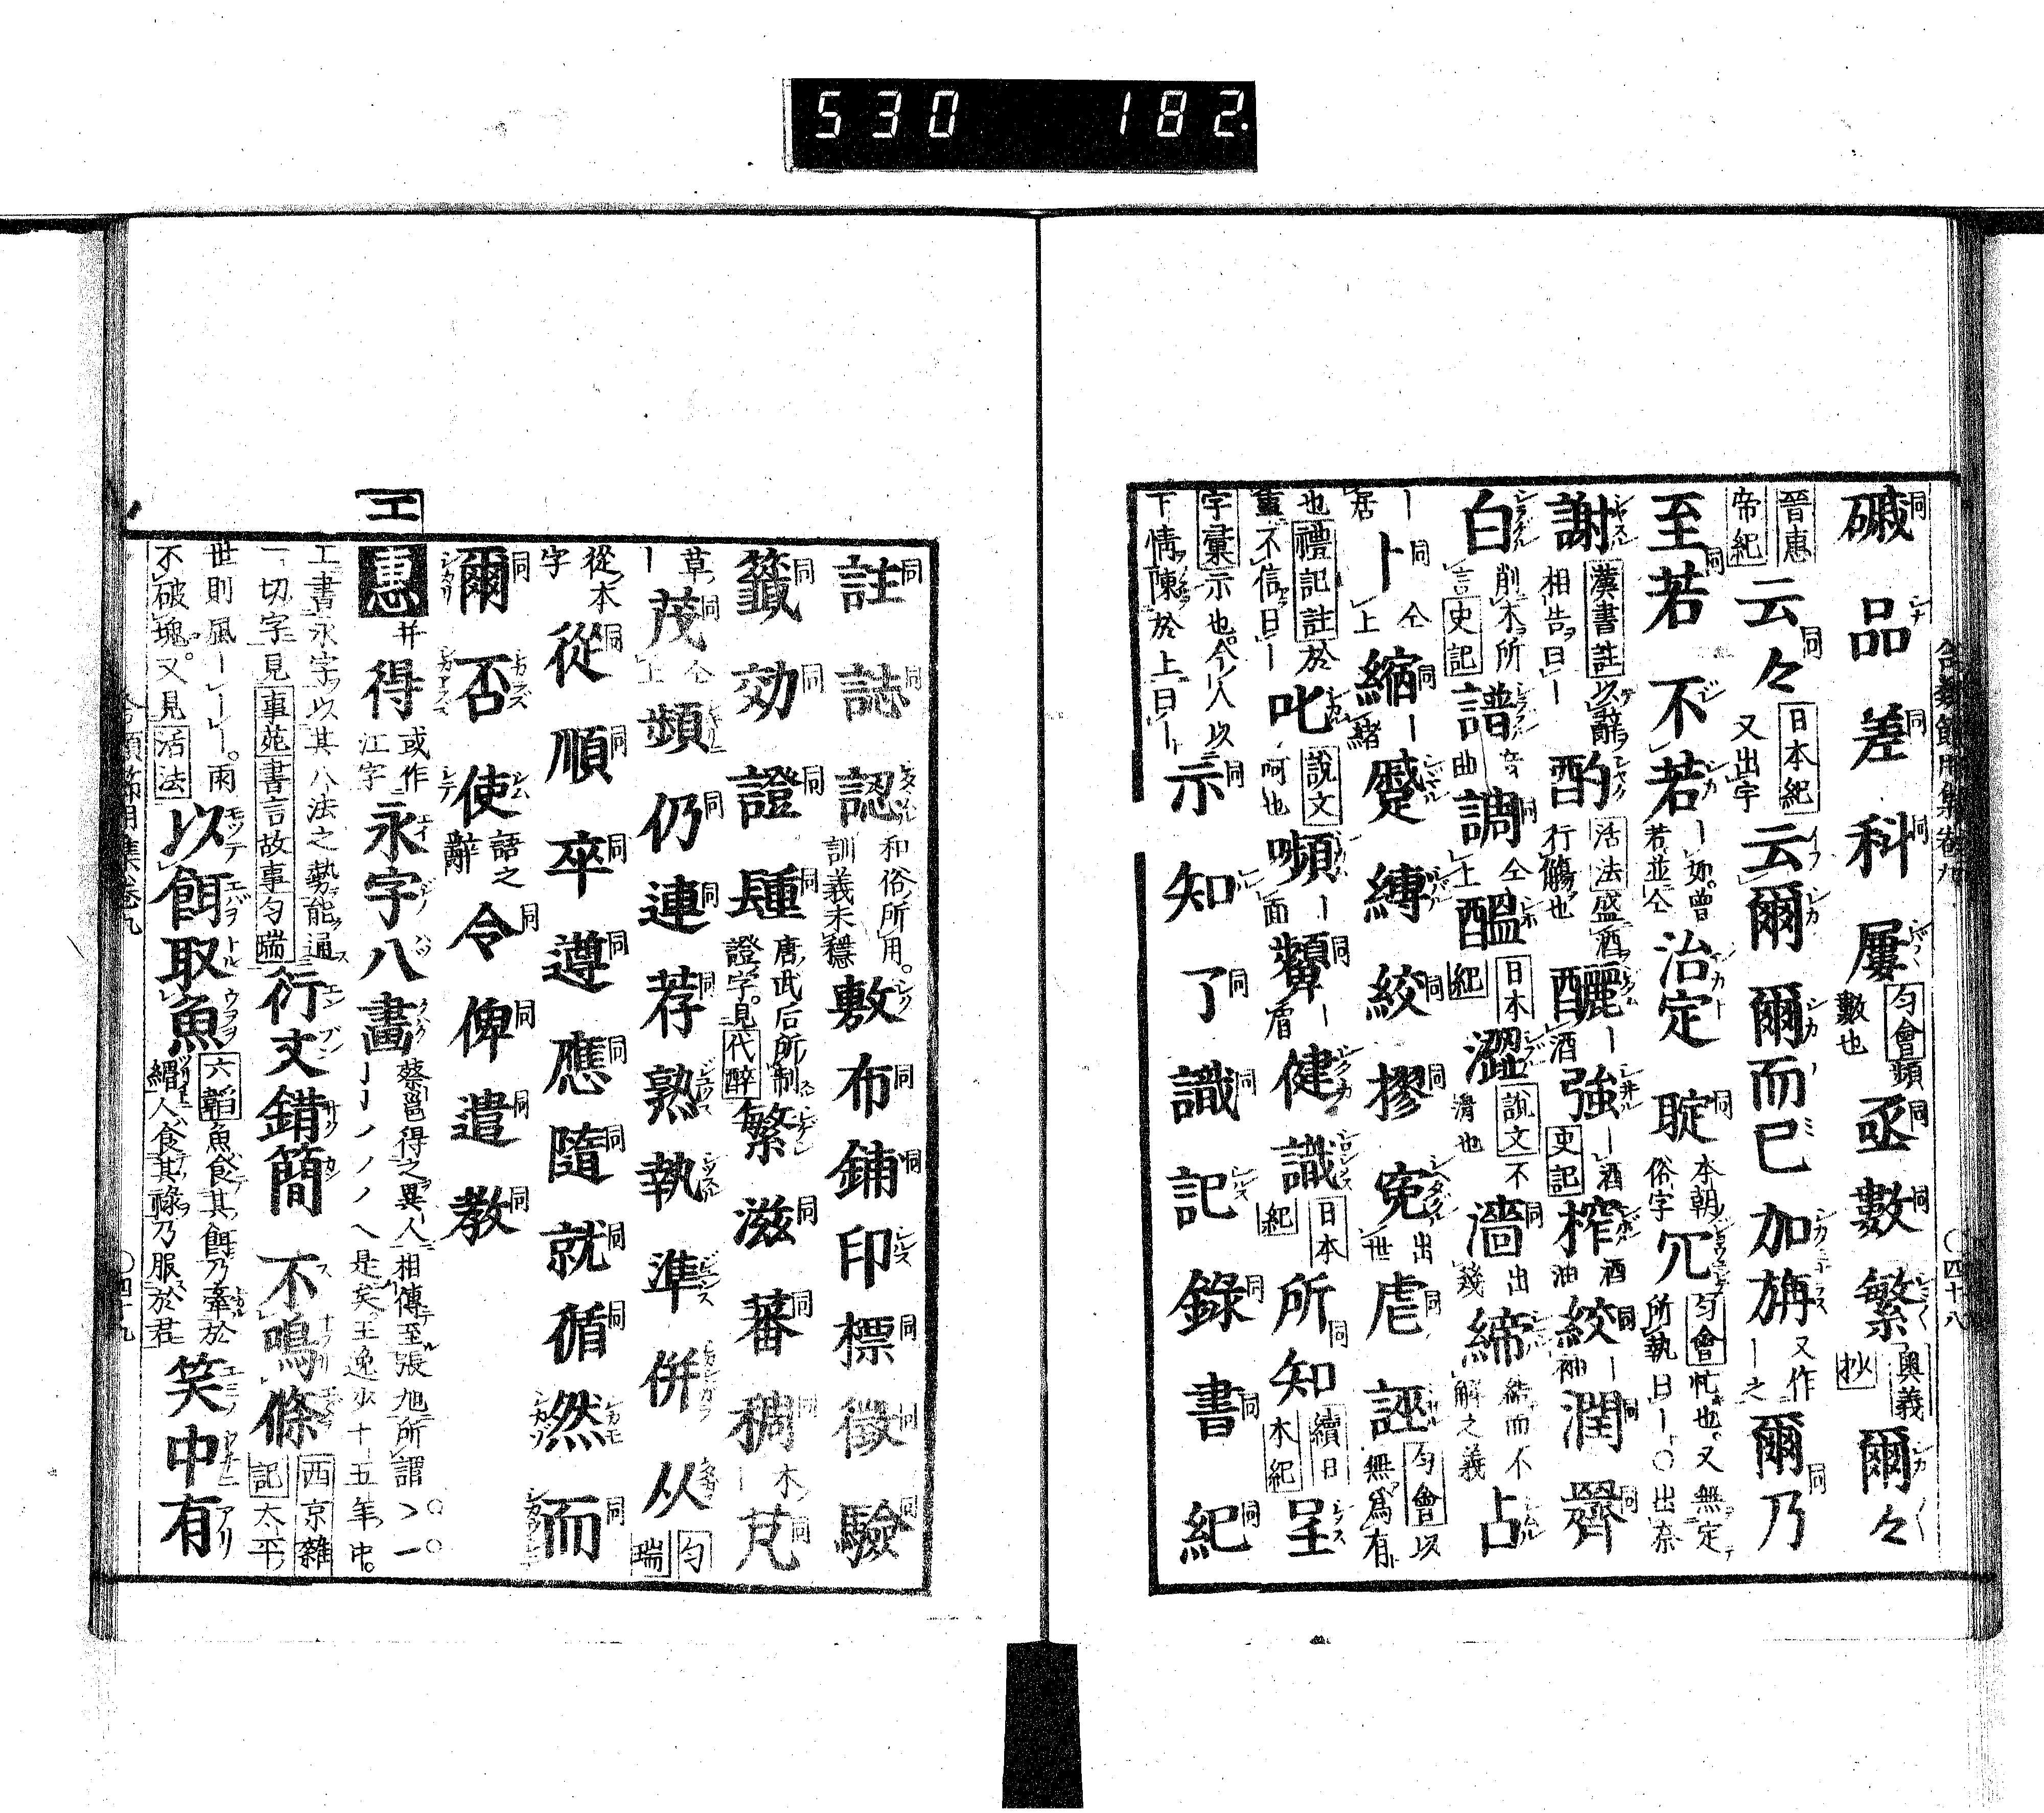 530 182.
合類節用集卷九 〇四十八
磩 品 差 科 屢 勻會頻數也 亟 數 繁 奧義抄 爾々
晉惠帝紀 云々 日本紀又出宇 云爾 爾而已 加旃 又作丨之 爾乃
至若 不若 丨如曾若並仝 治定 聢 本朝俗字 冗 勻會忙也又無定所執曰丨〇出奈
謝 漢書註以辭相告曰丨 酌 活法盛酒行觴也 釃 丨酒 強 丨酒史記 榨 酒油 絞 丨油 潤 齊
白 削木所言史記 譜 音曲 調 仝上 醞 日本紀 澀 說文不滑也 濇 出幾 締 結而不解之義 占
丨居 卜 仝上 縮 丨緒 蹙 縛 絞 摎 寃 出世 虐 誣 勻會以無爲有
也禮記註於畫不信曰丨 叱 說文呵也 嚬 丨面 顰 丨眉 健 識 日本紀 所知 續日本紀 呈
字彙示也今人以下情陳於上曰丨 示 知 了 識 記 錄 書 紀
註 誌 認 和俗所用訓義未穩 敷 布 鋪 印 標 徵 驗
籤 効 證 𨲢 唐武后所制證字見代醉 繁 滋 蕃 稠 丨木 芃
草丨 茂 仝上 頻 仍 連 荐 熟 執 準 併 从 勻瑞
從本字 從 順 卒 遵 應 隨 就 循 然 而
爾 否 使 語之辭 令 俾 遣 教
エ 惠 幷 得 或作江字 永字八畫 蔡邕得之異人相傳至張旭所謂 是矣王逸少十五年中
工書永字以其八法之勢能通一切字見事苑書言故事勻瑞 衍文錯簡 不鳴條 西京雜記太平
世則風丨丨丨雨不破塊又見活法 以餌取魚 六韜魚食其餌乃牽於緡人食其祿乃服於君 笑中有
合類節用集卷九 〇四十九